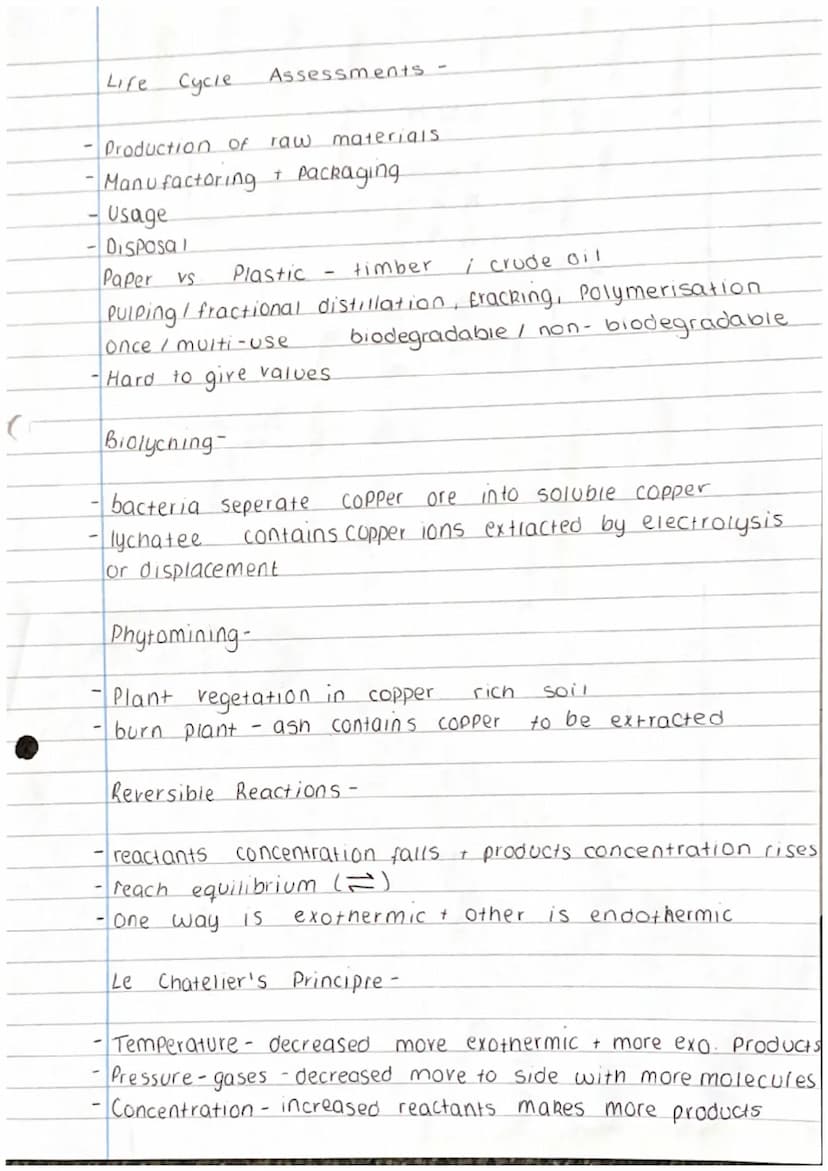 Life Cycle Assessments -
- Production of raw materials
- Manufactoring + Packaging
- Usage
- Disposal
Paper vs Plastic - timber / crude oil
Pulping / fractional distillation, cracking, Polymerisation
once / multi-use biodegradable / non-biodegradable
- Hard to give values
Biolyching -
- bacteria seperate copper ore into soluble copper
- lychatee contains copper ions extracted by electrolysis
or displacement
Phytomining -
- Plant vegetation in copper rich soil
- burn plant - ash contains copper to be extracted
Reversible Reactions -
- reactants concentration falls + products concentration rises
- reach equilibrium (⇌)
- One way is exothermic + other is endothermic
Le Chatelier's Principre -
- Temperature - decreased move exothermic + more exo. Products
- Pressure - gases - decreased move to side with more molecules
- Concentration - increased reactants makes more products